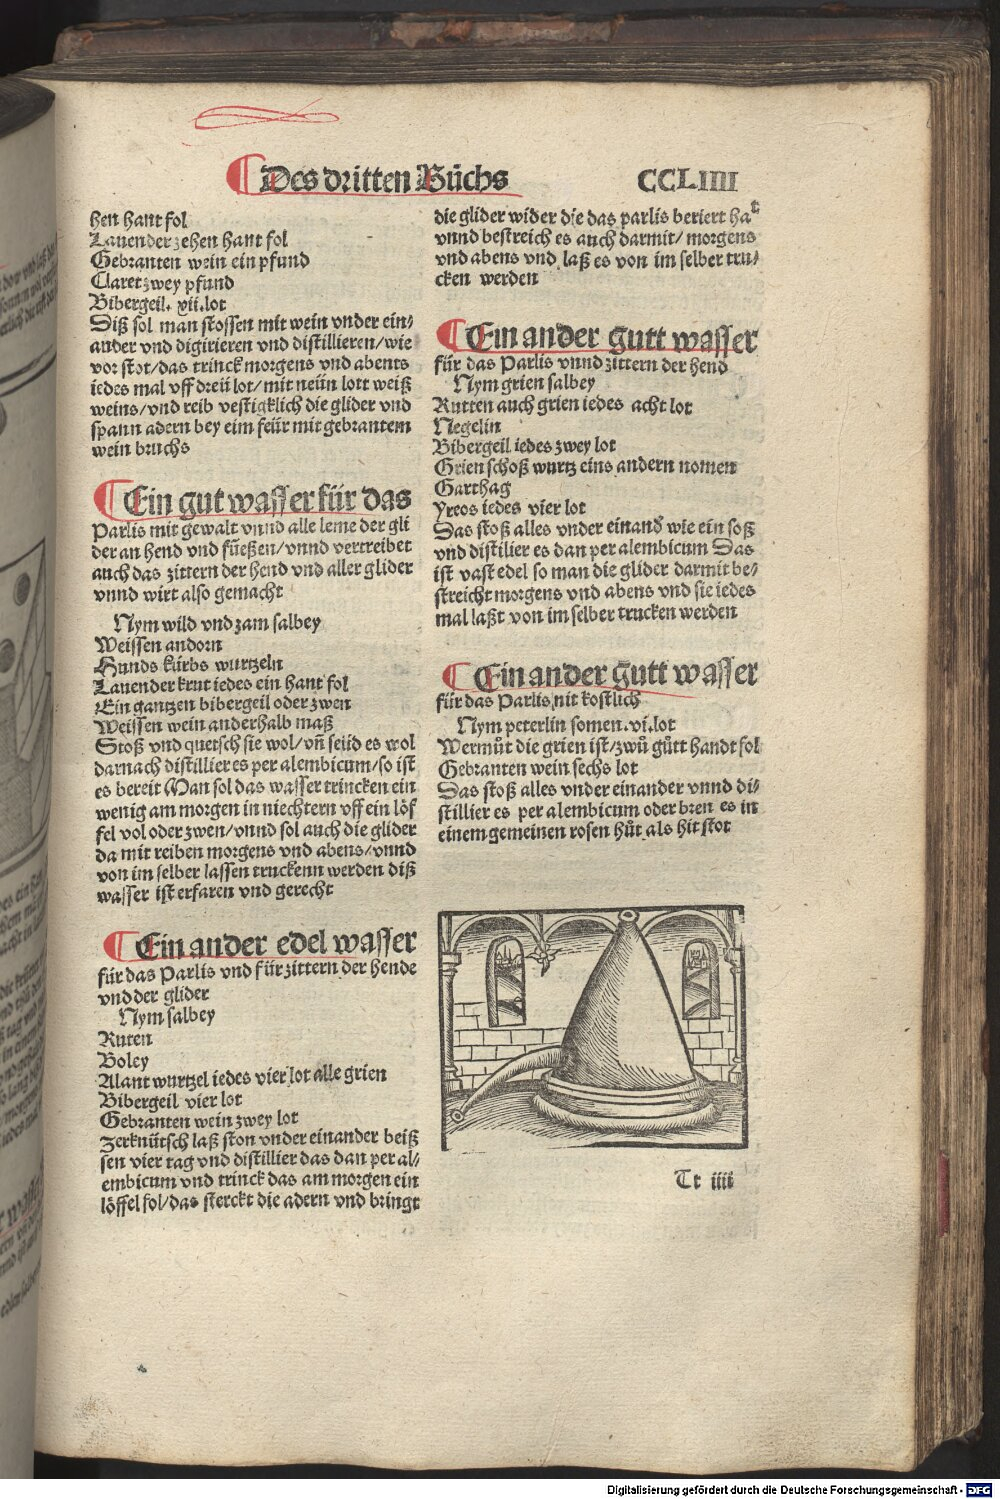 Des dritten Bůchs
CCLIIII
hen hant fol
Lauender zehen hant fol
Gebranten wein ein pfund
Claret zwey pfund
Bibergeil. xii.lot
Diß sol man stossen mit wein vnder ein/
ander vnd digirieren vnd distillieren/wie
vor stot/das trinck morgens vnd abents
iedes mal vff dreü lot/mit neün lott weiß
weins/vnd reib vestigklich die glider vnd
spann adern bey eim feür mit gebrantem
wein bruchs
Ein gut wasser für das
Parlis mit gewalt vnnd alle leme der gli
der an hend vnd füeßen/vnnd vertreibet
auch das zittern der hend vnd aller glider
vnnd wirt also gemacht
Nym wild vnd zam salbey
Weissen andorn
Hunds kürbs wurtzeln
Lauender krut iedes ein hant fol
Ein gantzen bibergeil oder zwen
Weissen wein anderhalb maß
Stoß vnd quetsch sie wol/vn̄ seiid es wol
darnach distillier es per alembicum/so ist
es bereit Man sol das wasser trincken ein
wenig am morgen in niechtern vff ein löf
fel vol oder zwen/vnnd sol auch die glider
da mit reiben morgens vnd abens/vnnd
von im selber lassen truckenn werden diß
wasser ist erfaren vnd gerecht
Ein ander edel wasser
für das Parlis vnd für zittern der hende
vnd der glider
Nym salbey
Ruten
Boley
Alant wurtzel iedes vier lot alle grien
Bibergeil vier lot
Gebranten wein zwey lot
Zerknütsch laß ston vnder einander beiß
sen vier tag vnd distillier das dan per al/
embicum vnd trinck das am morgen ein
löffel fol/das sterckt die adern vnd bringt
die glider wider die das parlis beriert hat
vnnd bestreich es auch darmit/morgens
vnd abens vnd laß es von im selber tru/
cken werden
Ein ander gutt wasser
für das Parlis vnnd zittern der hend
Nym grien salbey
Rutten auch grien iedes acht lot
Negelin
Bibergeil iedes zwey lot
Grien schoß wurtz eins andern nomen
Garthag
Yreos iedes vier lot
Das stoß alles vnder einand wie ein soß
vnd distilier es dan per alembicum Das
ist vast edel so man die glider darmit be/
streicht morgens vnd abens vnd sie iedes
mal laßt von im selber trucken werden
Ein ander gutt wasser
für das Parlis nit kostlich
Nym peterlin somen.vi.lot
Wermůt die grien ist/zwů gůtt handt fol
Gebranten wein sechs lot
Das stoß alles vnder einander vnnd di/
stillier es per alembicum oder bren es in
einem gemeinen rosen hůt als hit stot
Tt iiii
Digitalisierung gefördert durch die Deutsche Forschungsgemeinschaft - DFG